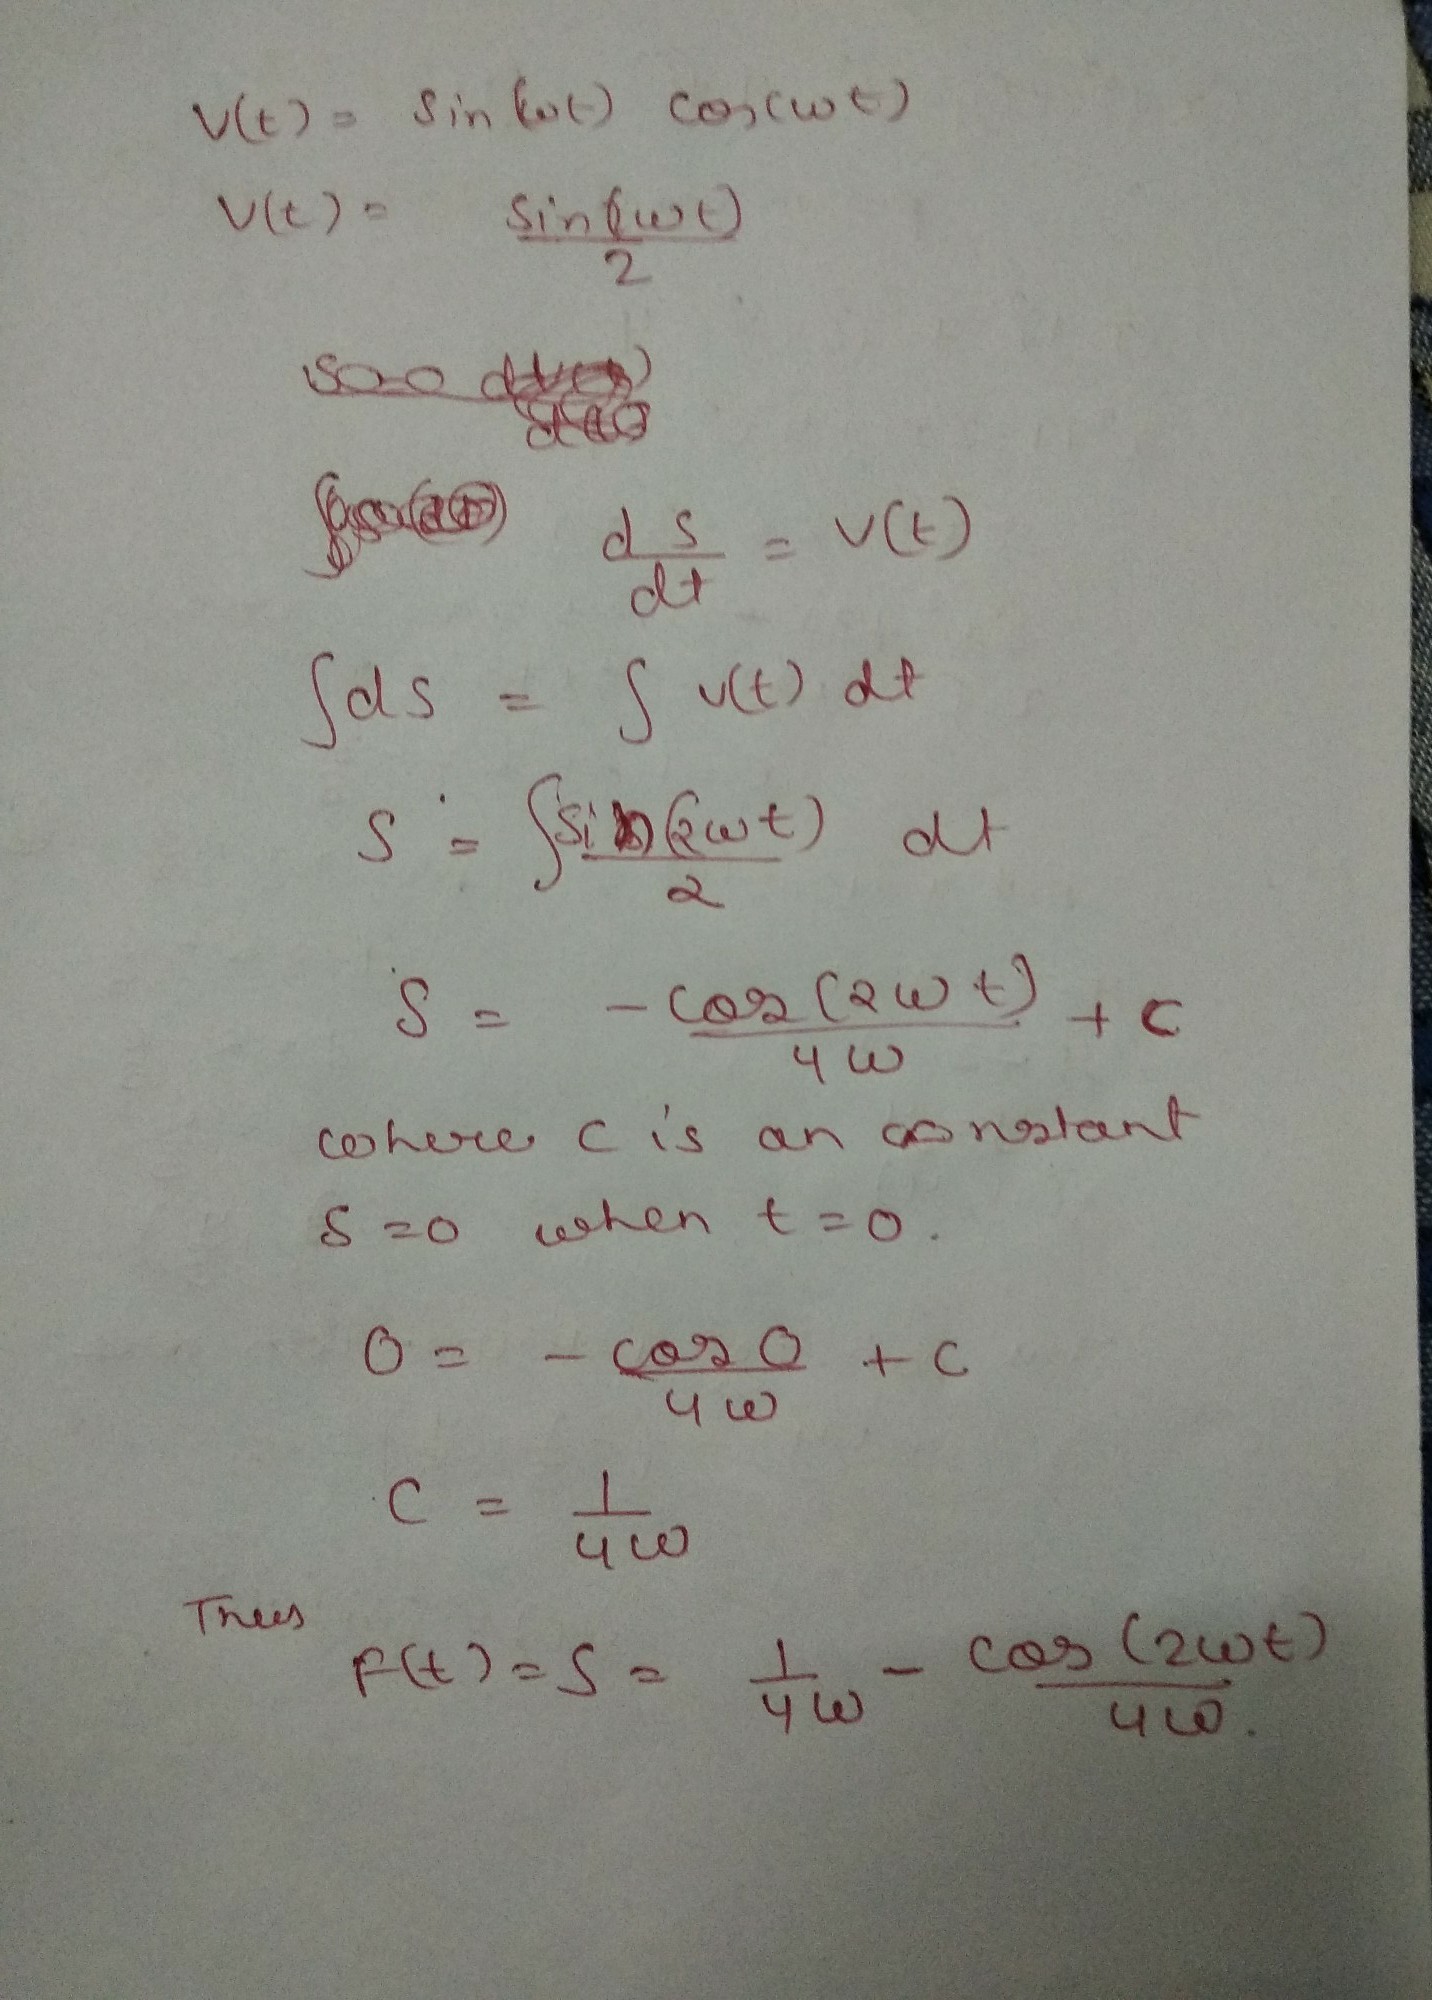 V(t) = Sin(ωt) cos(ωt)
V(t) = sin(2ωt)
2
ds = v(t)
dt
∫ds = ∫ v(t) dt
S = ∫sin(2ωt) dt
2
S = - cos(2ωt) + C
4ω
where C is an constant
S=0 when t=0.
0 = - cos 0 + C
4ω
C = 1
4ω
Thus
F(t) = S = 1/4ω - cos(2ωt)/4ω.